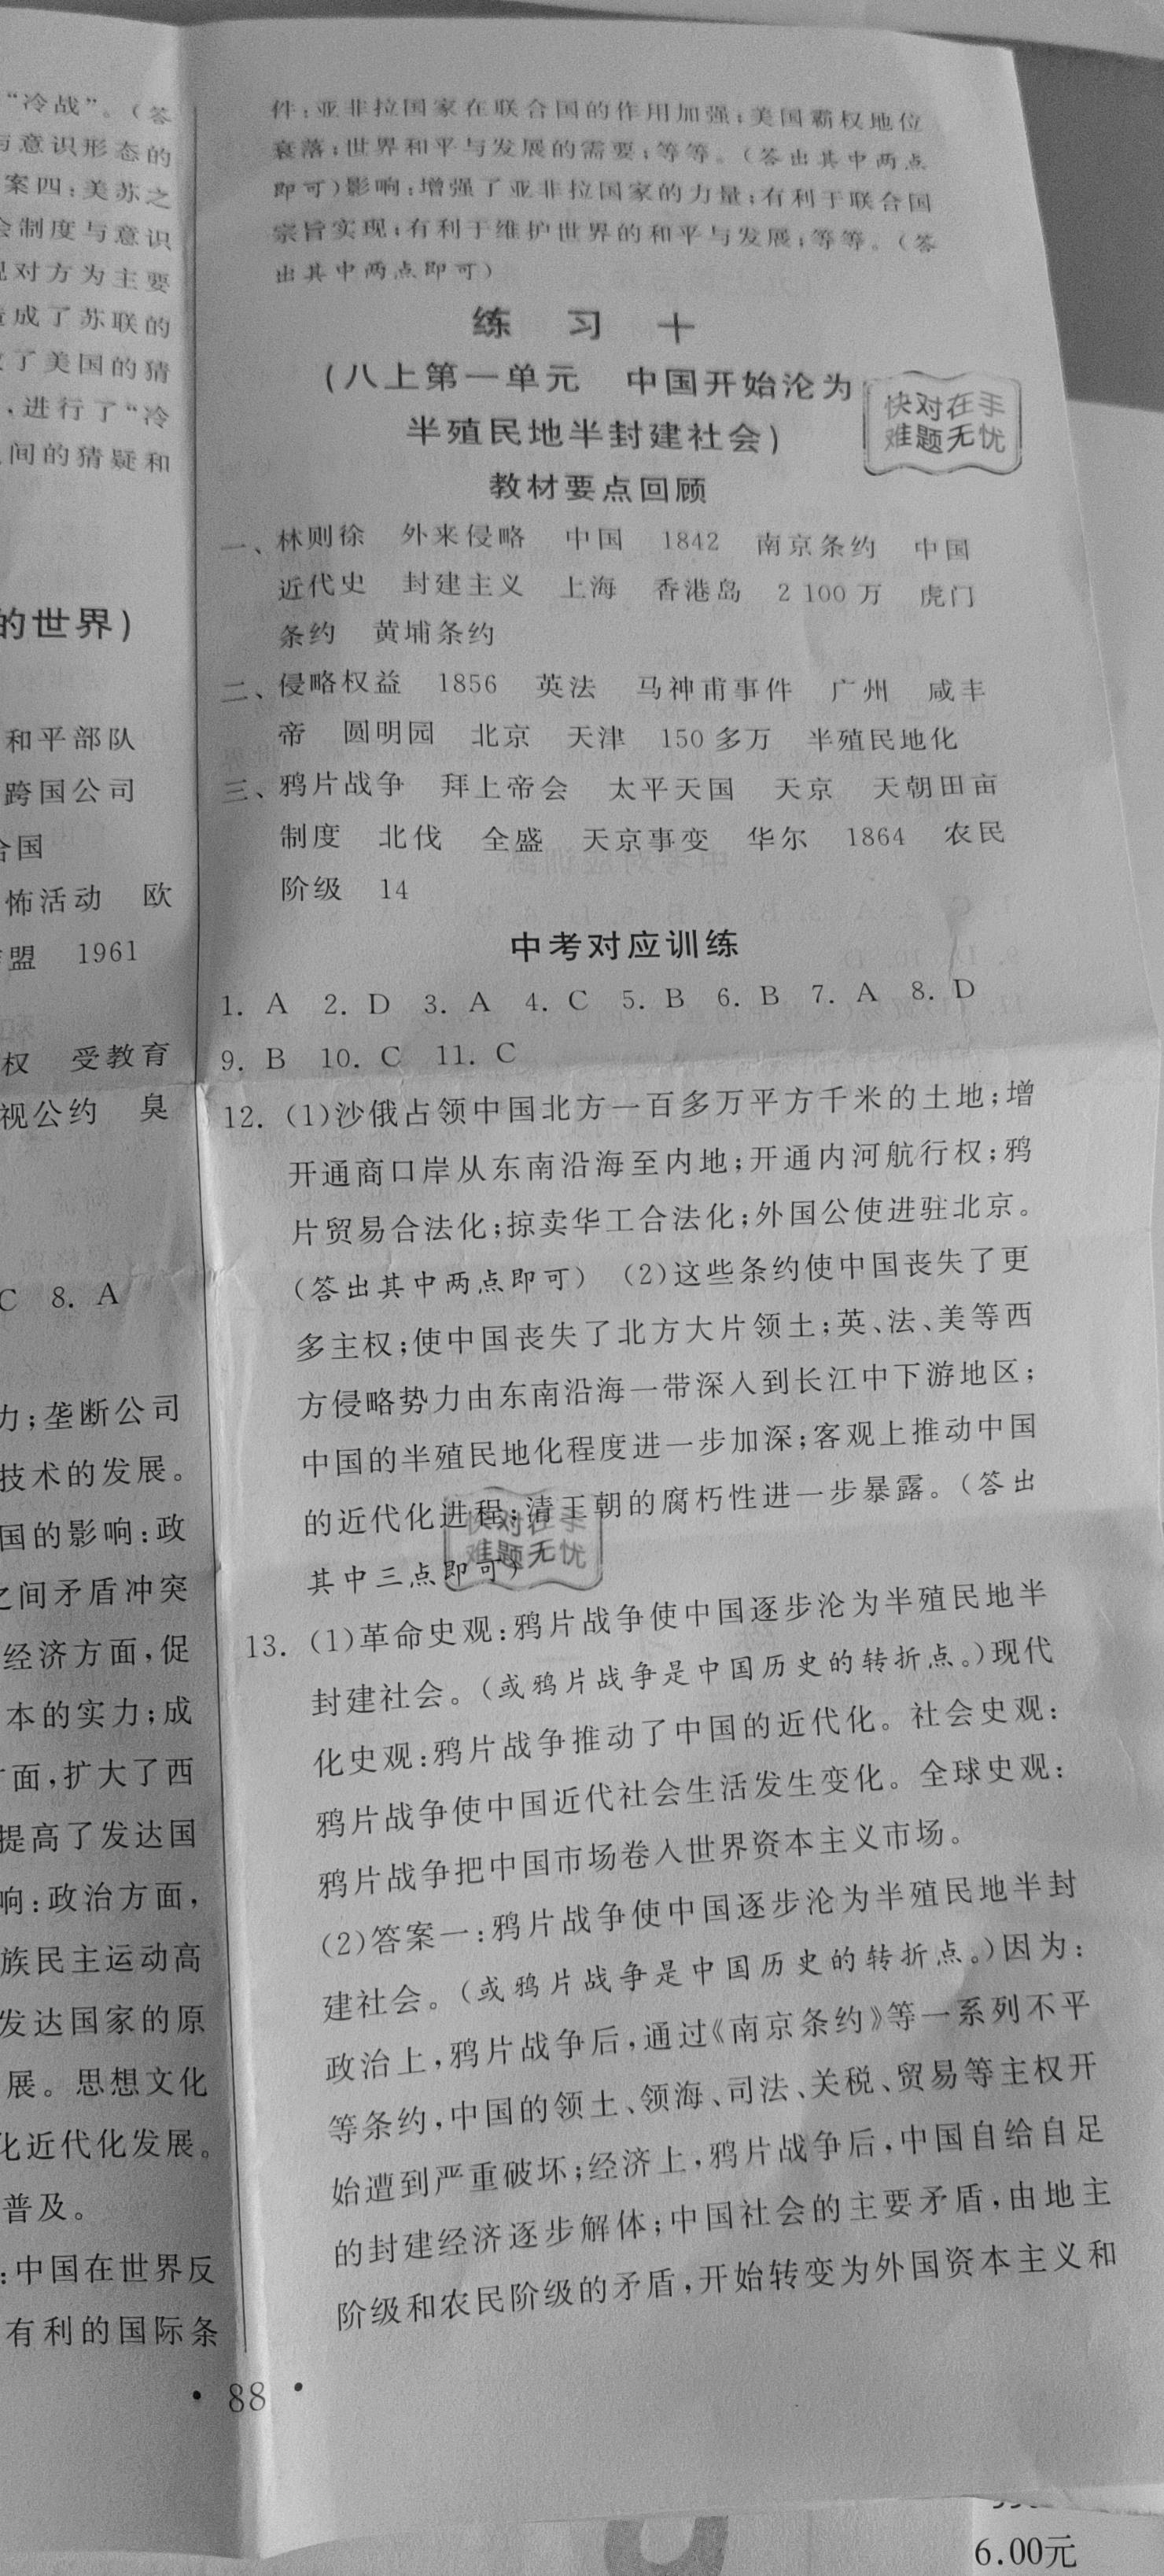 “冷战”。(答
与意识形态的
案四:美苏之
会制度与意识
视对方为主要
造成了苏联的
了美国的猜
,进行了“冷
间的猜疑和
的世界)
和平部队
跨国公司
合国
怖活动 欧
盟 1961
权 受教育
视公约 臭
C 8. A
力;垄断公司
技术的发展。
国的影响:政
之间矛盾冲突
经济方面,促
本的实力;成
方面,扩大了西
提高了发达国
响:政治方面,
族民主运动高
发达国家的原
展。思想文化
化近代化发展。
普及。
:中国在世界反
有利的国际条
件;亚非拉国家在联合国的作用加强;美国霸权地位
衰落;世界和平与发展的需要;等等。(答出其中两点
即可)影响:增强了亚非拉国家的力量;有利于联合国
宗旨实现;有利于维护世界的和平与发展;等等。(答
出其中两点即可)
练 习 十
(八上第一单元 中国开始沦为
半殖民地半封建社会)
快对在手
难题无忧
教材要点回顾
一、林则徐 外来侵略 中国 1842 南京条约 中国
近代史 封建主义 上海 香港岛 2 100 万 虎门
条约 黄埔条约
二、侵略权益 1856 英法 马神甫事件 广州 咸丰
帝 圆明园 北京 天津 150 多万 半殖民地化
三、鸦片战争 拜上帝会 太平天国 天京 天朝田亩
制度 北伐 全盛 天京事变 华尔 1864 农民
阶级 14
中考对应训练
1. A 2. D 3. A 4. C 5. B 6. B 7. A 8. D
9. B 10. C 11. C
12. (1)沙俄占领中国北方一百多万平方千米的土地;增
开通商口岸从东南沿海至内地;开通内河航行权;鸦
片贸易合法化;掠卖华工合法化;外国公使进驻北京。
(答出其中两点即可) (2)这些条约使中国丧失了更
多主权;使中国丧失了北方大片领土;英、法、美等西
方侵略势力由东南沿海一带深入到长江中下游地区;
中国的半殖民地化程度进一步加深;客观上推动中国
的近代化进程;清王朝的腐朽性进一步暴露。(答出
其中三点即可)
快对在手
难题无忧
13. (1)革命史观:鸦片战争使中国逐步沦为半殖民地半
封建社会。(或鸦片战争是中国历史的转折点。)现代
化史观:鸦片战争推动了中国的近代化。社会史观:
鸦片战争使中国近代社会生活发生变化。全球史观:
鸦片战争把中国市场卷入世界资本主义市场。
(2)答案一:鸦片战争使中国逐步沦为半殖民地半封
建社会。(或鸦片战争是中国历史的转折点。)因为:
政治上,鸦片战争后,通过《南京条约》等一系列不平
等条约,中国的领土、领海、司法、关税、贸易等主权开
始遭到严重破坏;经济上,鸦片战争后,中国自给自足
的封建经济逐步解体;中国社会的主要矛盾,由地主
阶级和农民阶级的矛盾,开始转变为外国资本主义和
• 88 •
6.00元